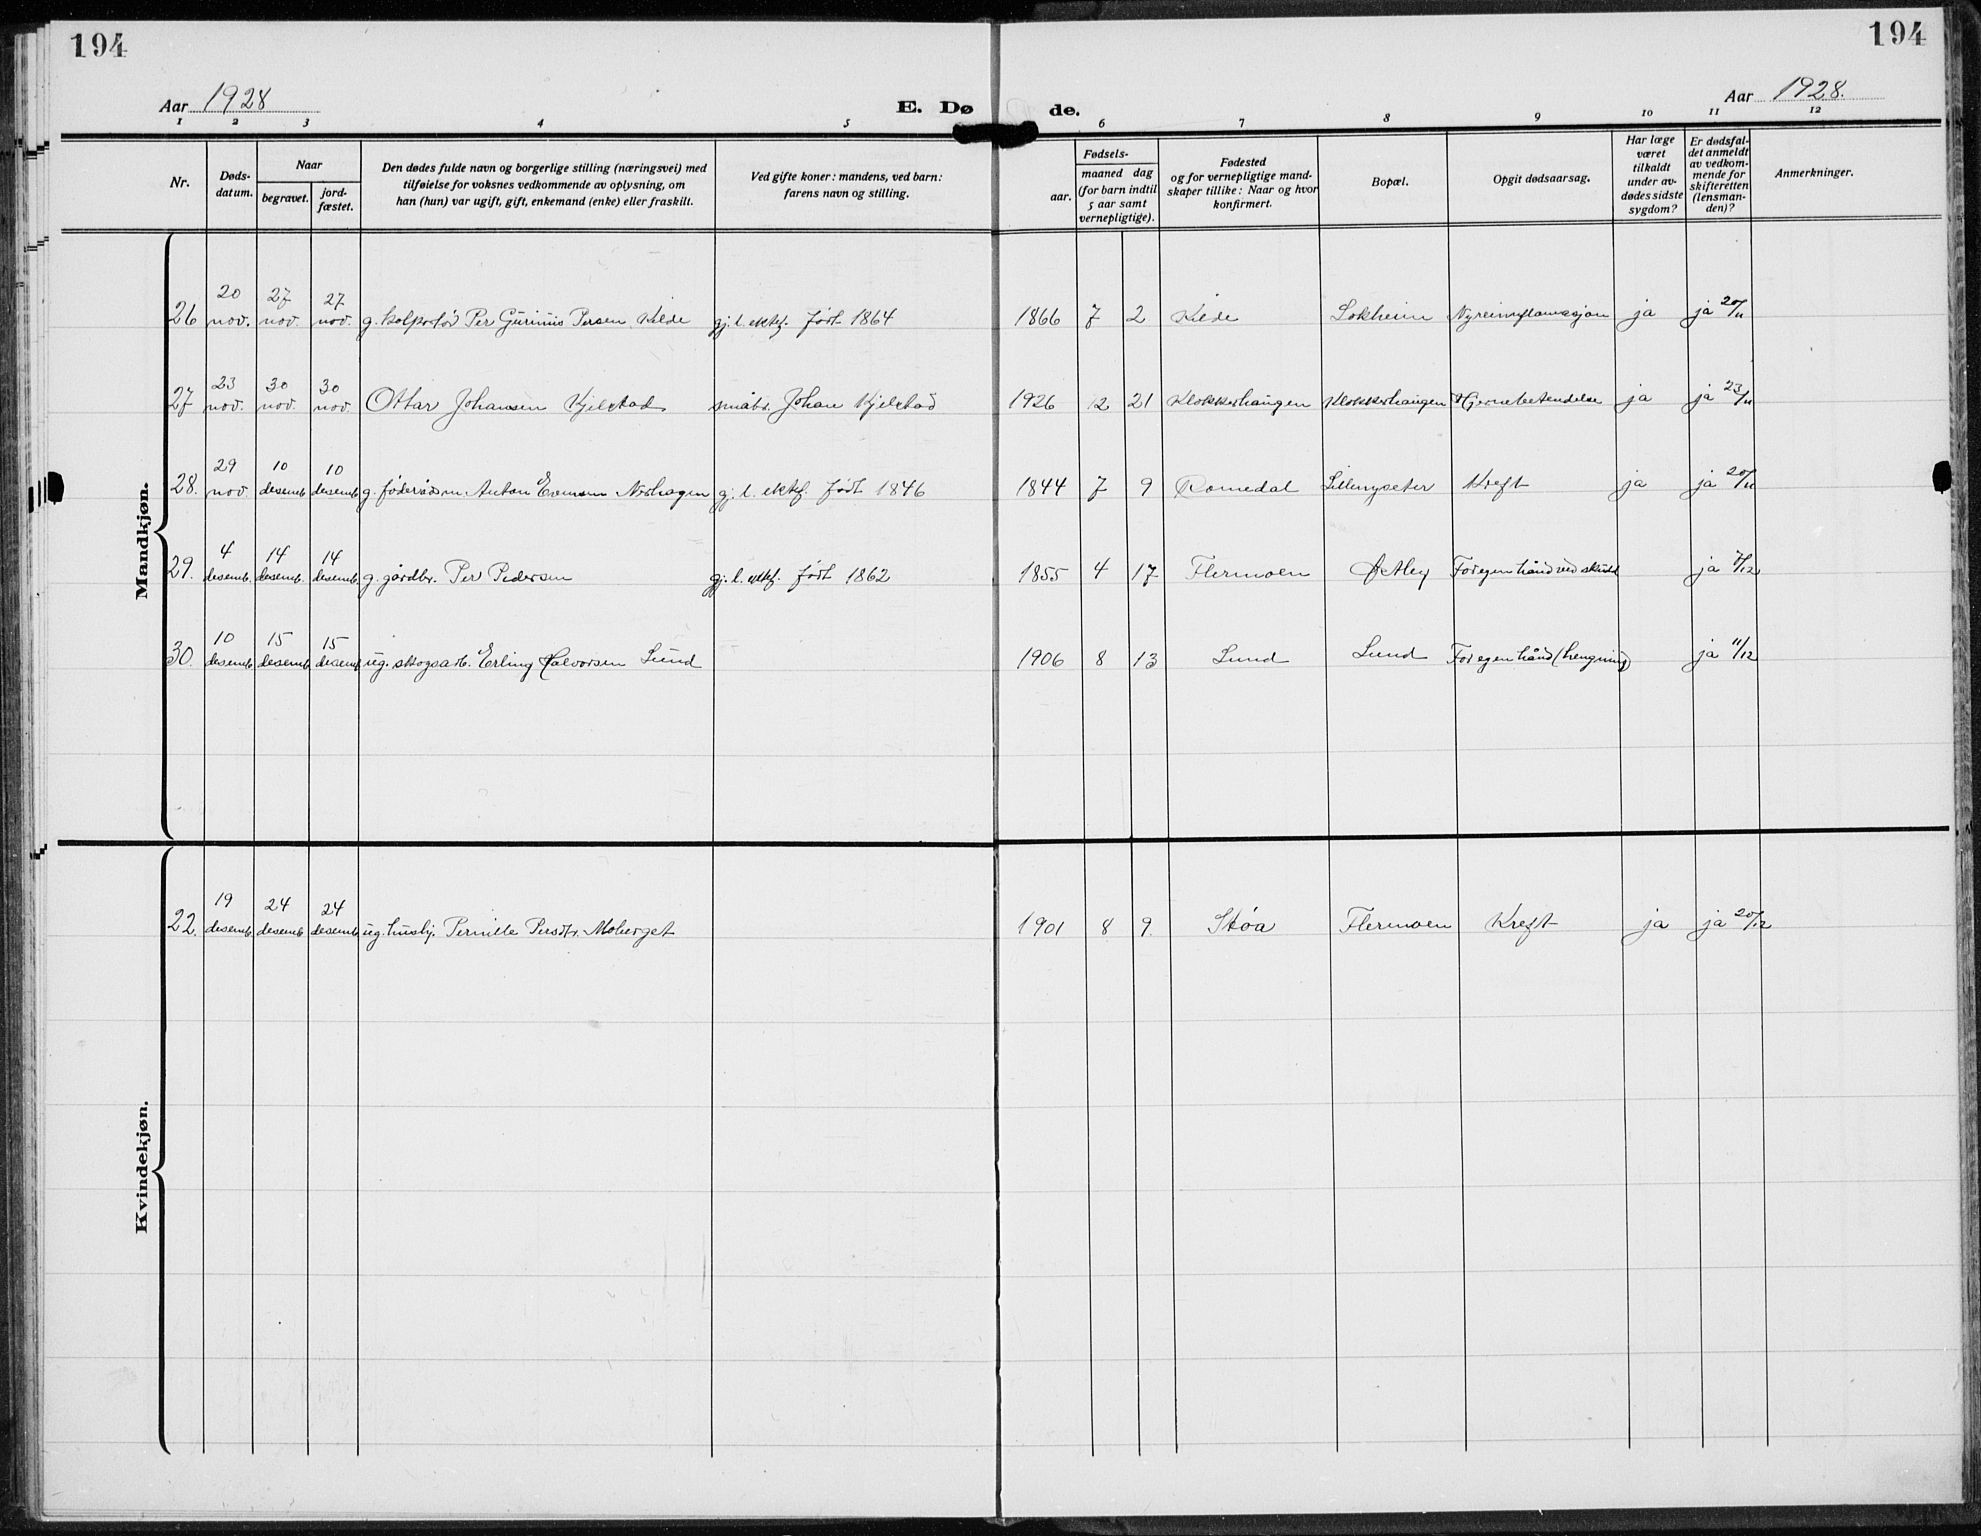 194
194
Aar 1928
E. Dø de.
Aar 1928.
1 2 3 4 5 6 7 8 9 10 11 12
Nr.
Døds-
datum.
Naar
begravet.
jord-
fæstet.
Den dødes fulde navn og borgerlige stilling (næringsvei) med
tilføielse for voksnes vedkommende av oplysning, om
han (hun) var ugift, gift, enkemand (enke) eller fraskilt.
Ved gifte koner: mandens, ved barn:
farens navn og stilling.
Fødsels-
aar.
maaned dag
(for barn indtil
5 aar samt
vernepligtige).
Fødested
og for vernepligtige mand-
skaper tillike: Naar og hvor
konfirmert.
Bopæl.
Opgit dødsaarsag.
Har læge
været
tilkaldt
under av-
dødes sidste
sygdom?
Er dødsfal-
det anmeldt
av vedkom-
mende for
skifteretten
(lensman-
den)?
Anmerkninger.
Mandkjøn.
26 20 nov. 27 nov. 27 nov. g. kolportør Per Gurinius Persen Kilde gj. l. ektef. født 1864 1866 7 2 Kilde Sokheim Nyreinflamasjon ja ja 20/11
27 23 nov. 30 nov. 30 nov. Ottar Johansen Kjelstad småbr. Johan Kjelstad 1926 12 21 Klokkerhaugen Klokkerhaugen Hjernebetendelse ja ja 23/11
28. 29 nov. 10 desemb. 10 desemb. g. føderådsm. Anton Evensen Norhagen gj. l. ektef. født 1846 1844 7 9 Romedal Lillenyseter Kreft ja ja 20/11
29. 4 desemb. 14 desemb. 14 desemb. g. gårdbr. Per Pedersen gj. l. ektef. født 1862 1855 4 17 Flermoen For egen hånd ved skudd ja 7/12
30. 10 desemb. 15 desemb. 15 desemb. ug. skogsarb. Erling Halvorsen Lund 1906 8 13 Lund Lund For egen hånd (hengning) ja 11/12
Kvindekjøn.
22. 19 desemb. 24 desemb. 24 desemb. ug. hushj. Pernille Persdtr. Moberget 1901 8 9. Støa Flermoen Kreft ja ja 20/12